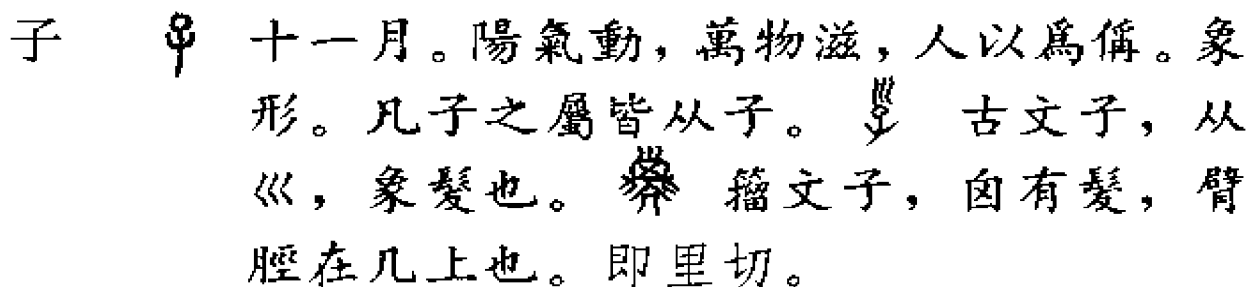 子 十一月。陽氣動，萬物滋，人以爲偁。象
形。凡子之屬皆从子。 古文子，从
巛，象髮也。 籒文子，囟有髮，臂
脛在几上也。即里切。